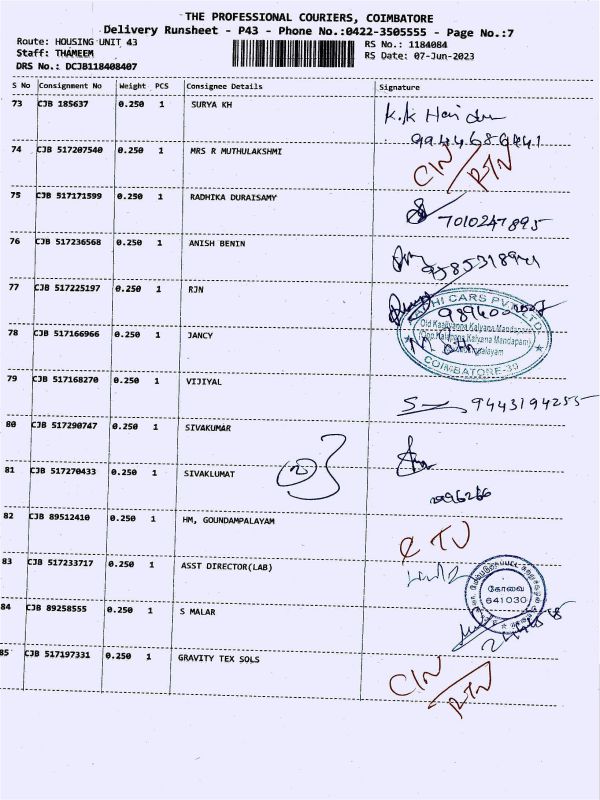 THE PROFESSIONAL COURIERS, COIMBATORE
Delivery Runsheet - P43 - Phone No.:0422-3505555 - Page No.:7
Route: HOUSING UNIT 43
RS No.: 1184084
Staff: THAMEEM
RS Date: 07-Jun-2023
DRS No.: DCJB118408407
S No Consignment No Weight PCS Consignee Details Signature
73 CJB 185637 0.250 1 SURYA KH
74 CJB 517207540 0.250 1 MRS R MUTHULAKSHMI
CIN / RTN
75 CJB 517171599 0.250 1 RADHIKA DURAISAMY
7010247895
76 CJB 517236568 0.250 1 ANISH BENIN
77 CJB 517225197 0.250 1 RJN
78 CJB 517166966 1 JANCY
0.250
CARS PVT LTD
Old Kaaliyanna Kalyana Mandapam
COIMBATORE-30
79 CJB 517168270 0.250 1 VIJIYAL
9443194255
80 CJB 517290747 0.250 1 SIVAKUMAR
81 CJB 517270433 0.250 1 SIVAKLUMAT
82 CJB 89512410 0.250 1 HM, GOUNDAMPALAYAM
83 CJB 517233717 0.250 1 ASST DIRECTOR(LAB)
கோவை
641030
84 CJB 89258555 0.250 1 S MALAR
85 CJB 517197331 0.250 1 GRAVITY TEX SOLS
CIN / RTN